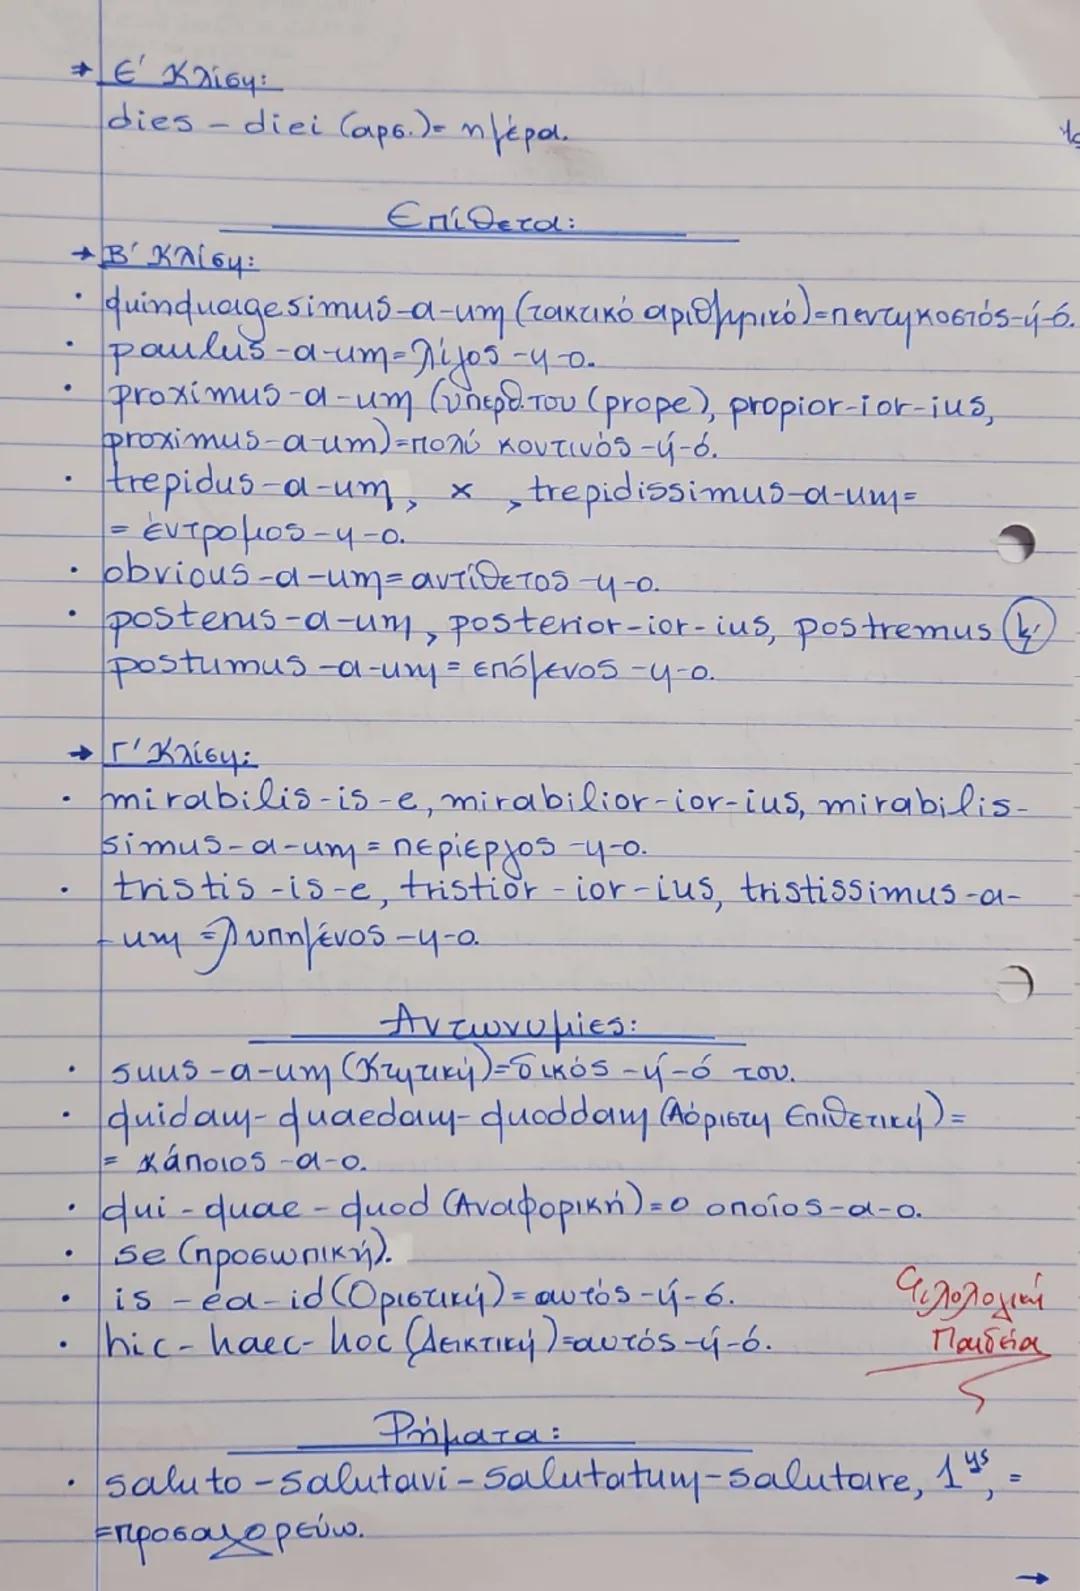 → Ε' Κλίση:
dies - diei (αρσ.)= ημέρα.
Επίθετα:
→ Β' Κλίση:
• quinquagesimus-a-um (τακτικό αριθμητικό)=πεντηκοστός-ή-ό.
• paulus-a-um=λίγος-η-ο.
• proximus-a-um (υπερθ. του (prope), propior-ior-ius,
proximus-a-um)=πολύ κοντινός -ή-ό.
• trepidus-a-um, x , trepidissimus-a-um=
= έντρομος-η-ο.
• obvious-a-um= αντίθετος-η-ο.
• posterus-a-um, posterior-ior-ius, postremus ή
postumus -a-um = επόμενος -η-ο.
→ Γ' Κλίση:
• mirabilis-is-e, mirabilior-ior-ius, mirabilis-
simus-a-um = περίεργος -η-ο.
• tristis -is-e, tristior - ior-ius, tristissimus-a-
-um =λυπημένος -η-ο.
Αντωνυμίες:
• suus-a-um (Κτητική)=δικός -ή-ό του.
• quidam-quaedam-quoddam (Αόριστη Επιθετική)=
= κάποιος -α-ο.
• qui - quae - quod (Αναφορική)=ο οποίος-α-ο.
• se (προσωπική).
• is -ea-id (Οριστική)= αυτός-ή-ό.
• hic-haec-hoc (Δεικτική)=αυτός-ή-ό.
Φιλολογική
Παιδεία
Ρήματα:
• saluto-salutavi-salutatum-salutare, 1ης, =
=προσαγορεύω.
→